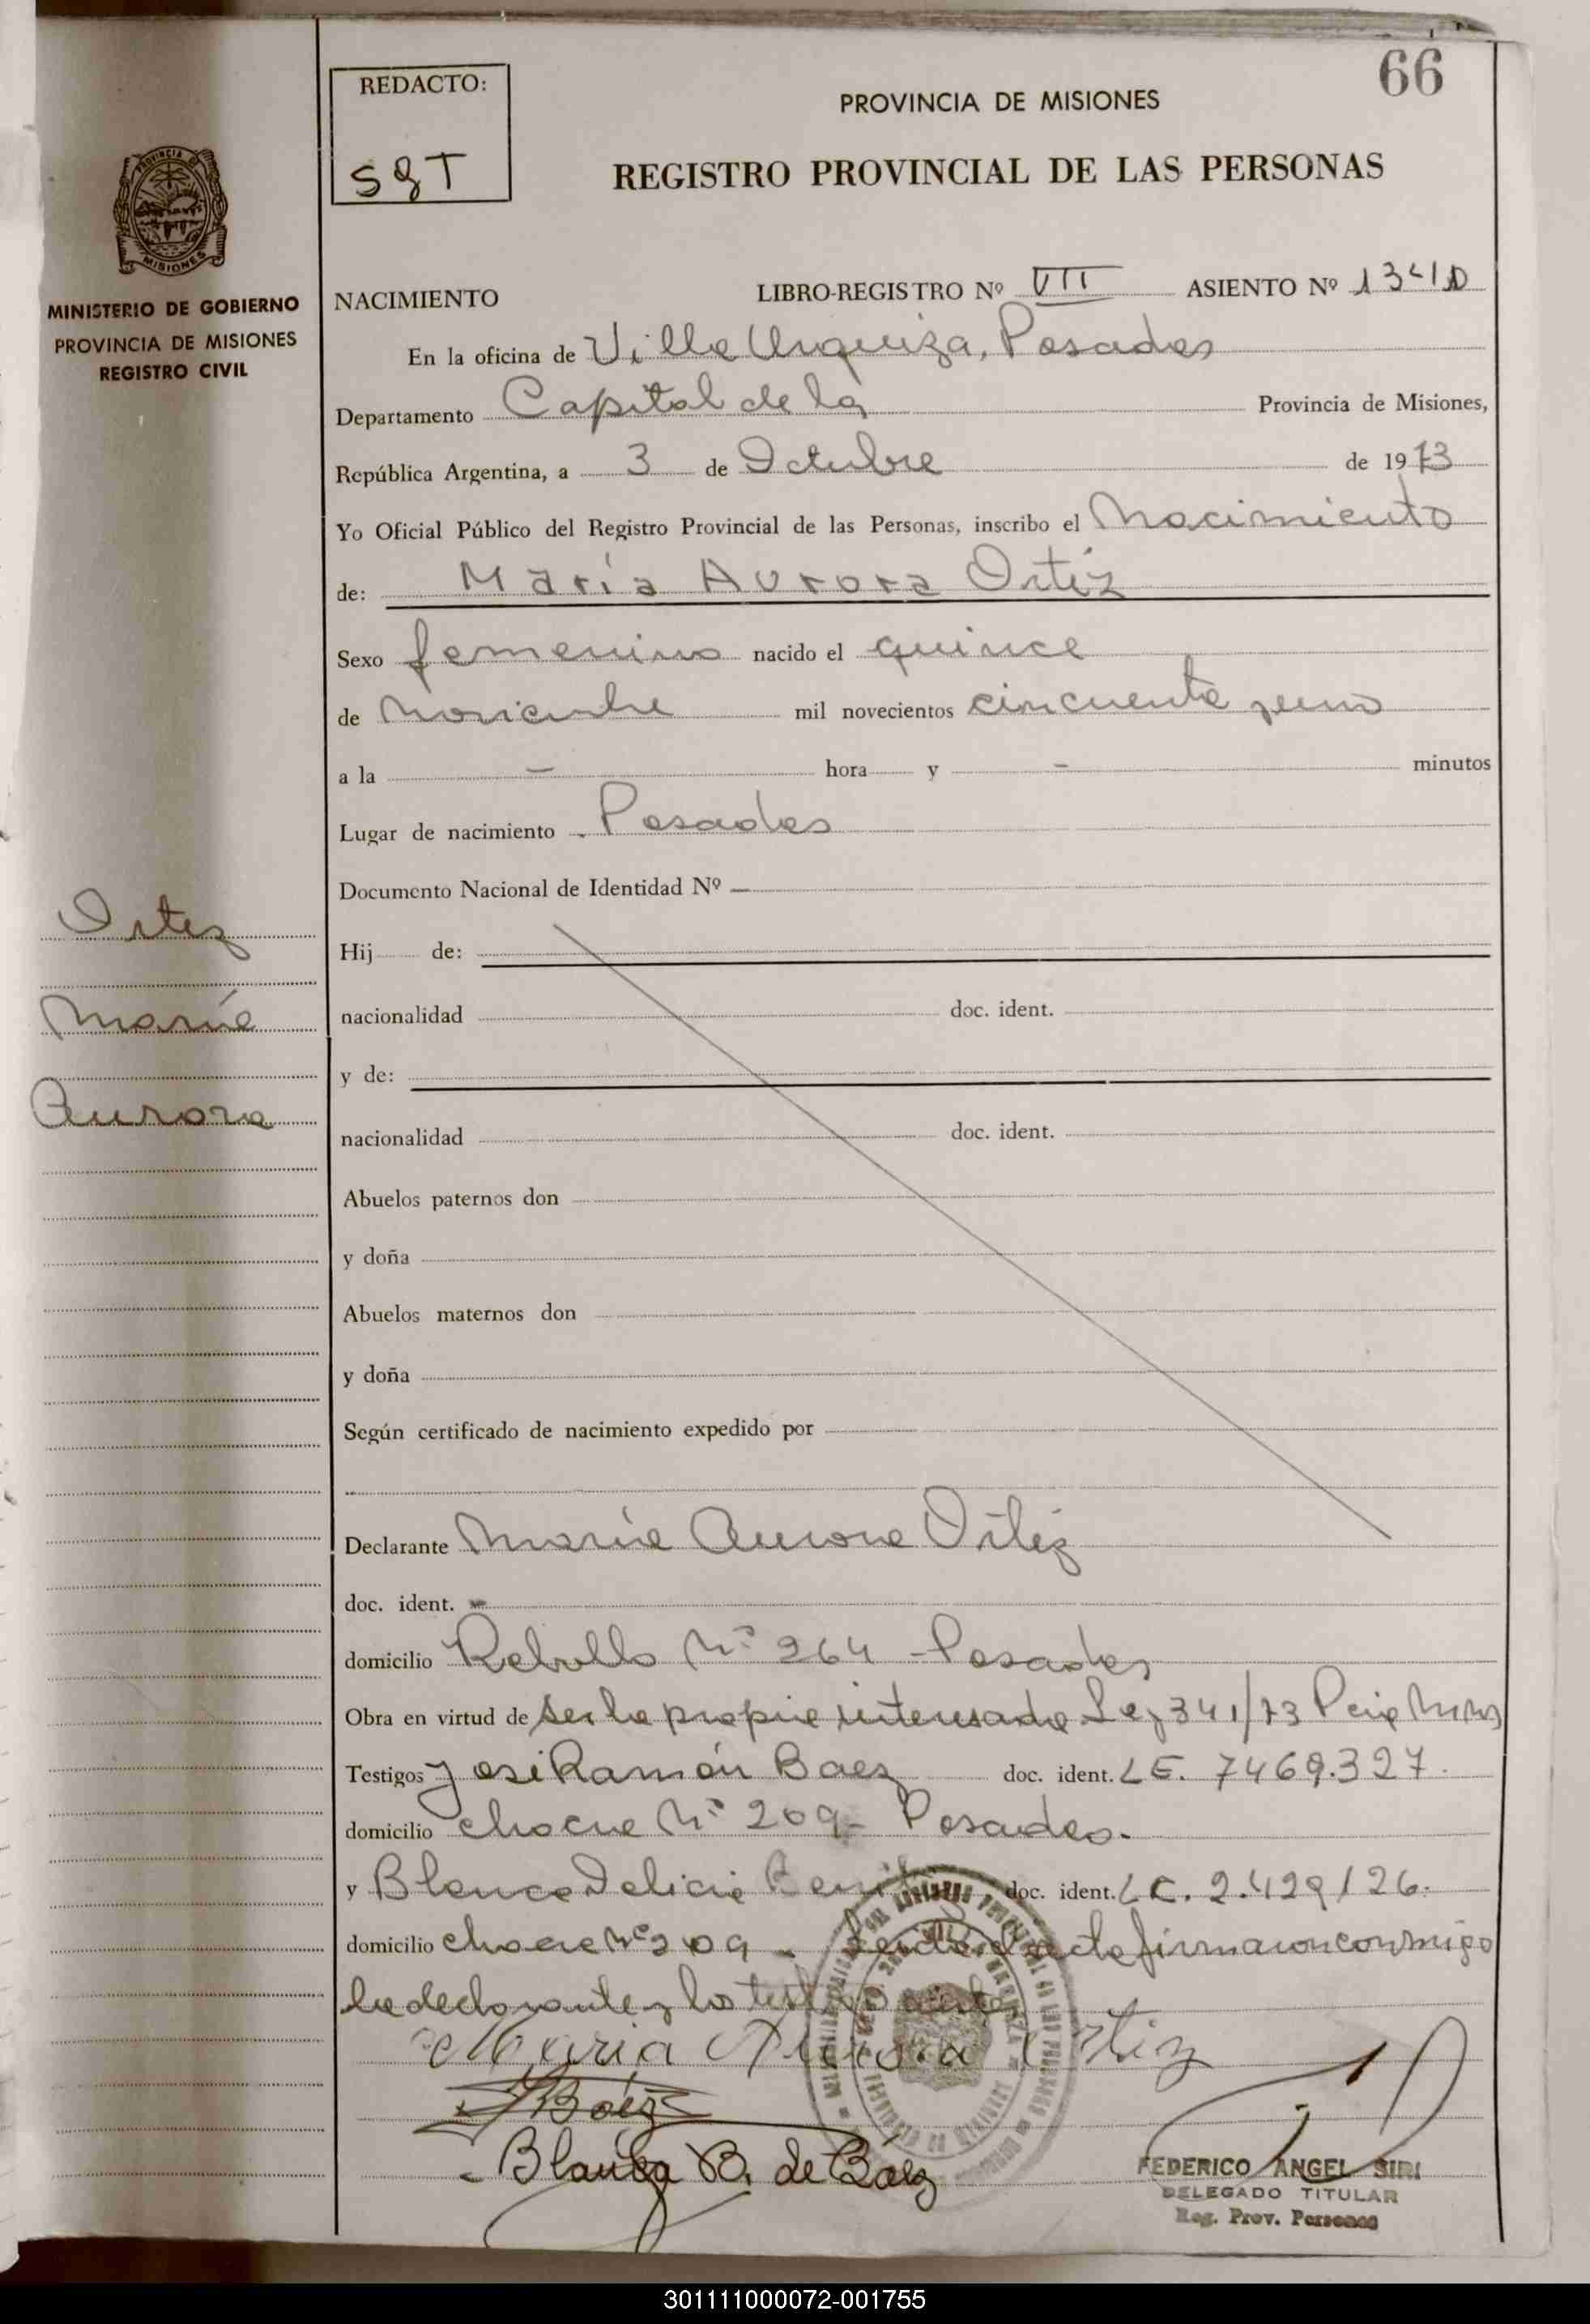 66
REDACTO:
SGT
PROVINCIA DE MISIONES
REGISTRO PROVINCIAL DE LAS PERSONAS
PROVINCIA
MISIONES
MINISTERIO DE GOBIERNO
PROVINCIA DE MISIONES
REGISTRO CIVIL
NACIMIENTO LIBRO-REGISTRO Nº VII ASIENTO Nº
En la oficina de Villa Urquiza, Posadas
Departamento Capital de la Provincia de Misiones,
República Argentina, a 3 de Octubre de 1973
Yo Oficial Público del Registro Provincial de las Personas, inscribo el Nacimiento
de: María Aurora Ortiz
Sexo femenino nacido el quince
de Noviembre mil novecientos cincuenta y uno
a la - hora y - minutos
Lugar de nacimiento Posadas
Documento Nacional de Identidad Nº -
Hij de:
nacionalidad doc. ident.
y de:
nacionalidad doc. ident.
Abuelos paternos don
y doña
Abuelos maternos don
y doña
Según certificado de nacimiento expedido por
Declarante María Aurora Ortiz
doc. ident. -
domicilio Rebollo Nº 264 - Posadas
Obra en virtud de ser la propia interesada Ley 341/73
Testigos José Ramón Baez doc. ident. L E. 7469.327.
domicilio Nº 209 - Posadas.
y Blanca Delicia Benitez doc. ident. L C. 2.429126.
domicilio Nº 209 - acta firmaron conmigo
la declarante y los testigos
Maria Aurora Ortiz
J Báez
Blanca B. de Báez
FEDERICO ANGEL SIRI
DELEGADO TITULAR
Reg. Prov. Personas
Ortiz
María
Aurora
301111000072-001755